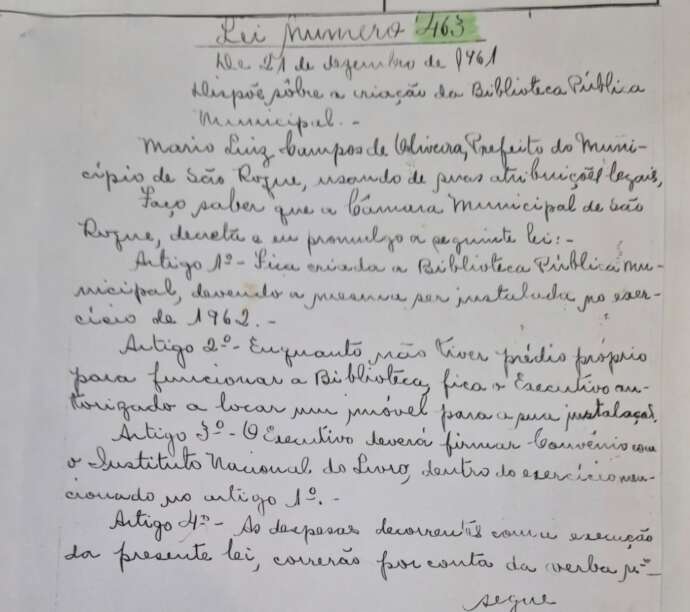 Lei Numero 463
De 21 de dezembro de 1961
Dispõe sôbre a criação da Biblioteca Pública
Municipal.-
Mario Luiz Campos de Oliveira, Prefeito do Muni-
cípio de São Roque, usando de suas atribuições legais,
Faço saber que a Câmara Municipal de São
Roque, decreta e eu promulgo a seguinte lei:-
Artigo 1º- Fica criada a Biblioteca Pública Mu-
nicipal, devendo a mesma ser instalada no exer-
cício de 1962.-
Artigo 2º- Enquanto não tiver prédio próprio
para funcionar a Biblioteca, fica o Executivo au-
torizado a locar um imóvel para a sua instalação.
Artigo 3º- O Executivo deverá firmar Convênio com
o Instituto Nacional do Livro, dentro do exercício men-
cionado no artigo 1º.-
Artigo 4º- As despesas decorrentes com a execução
da presente lei, correrão por conta da verba nº-
segue